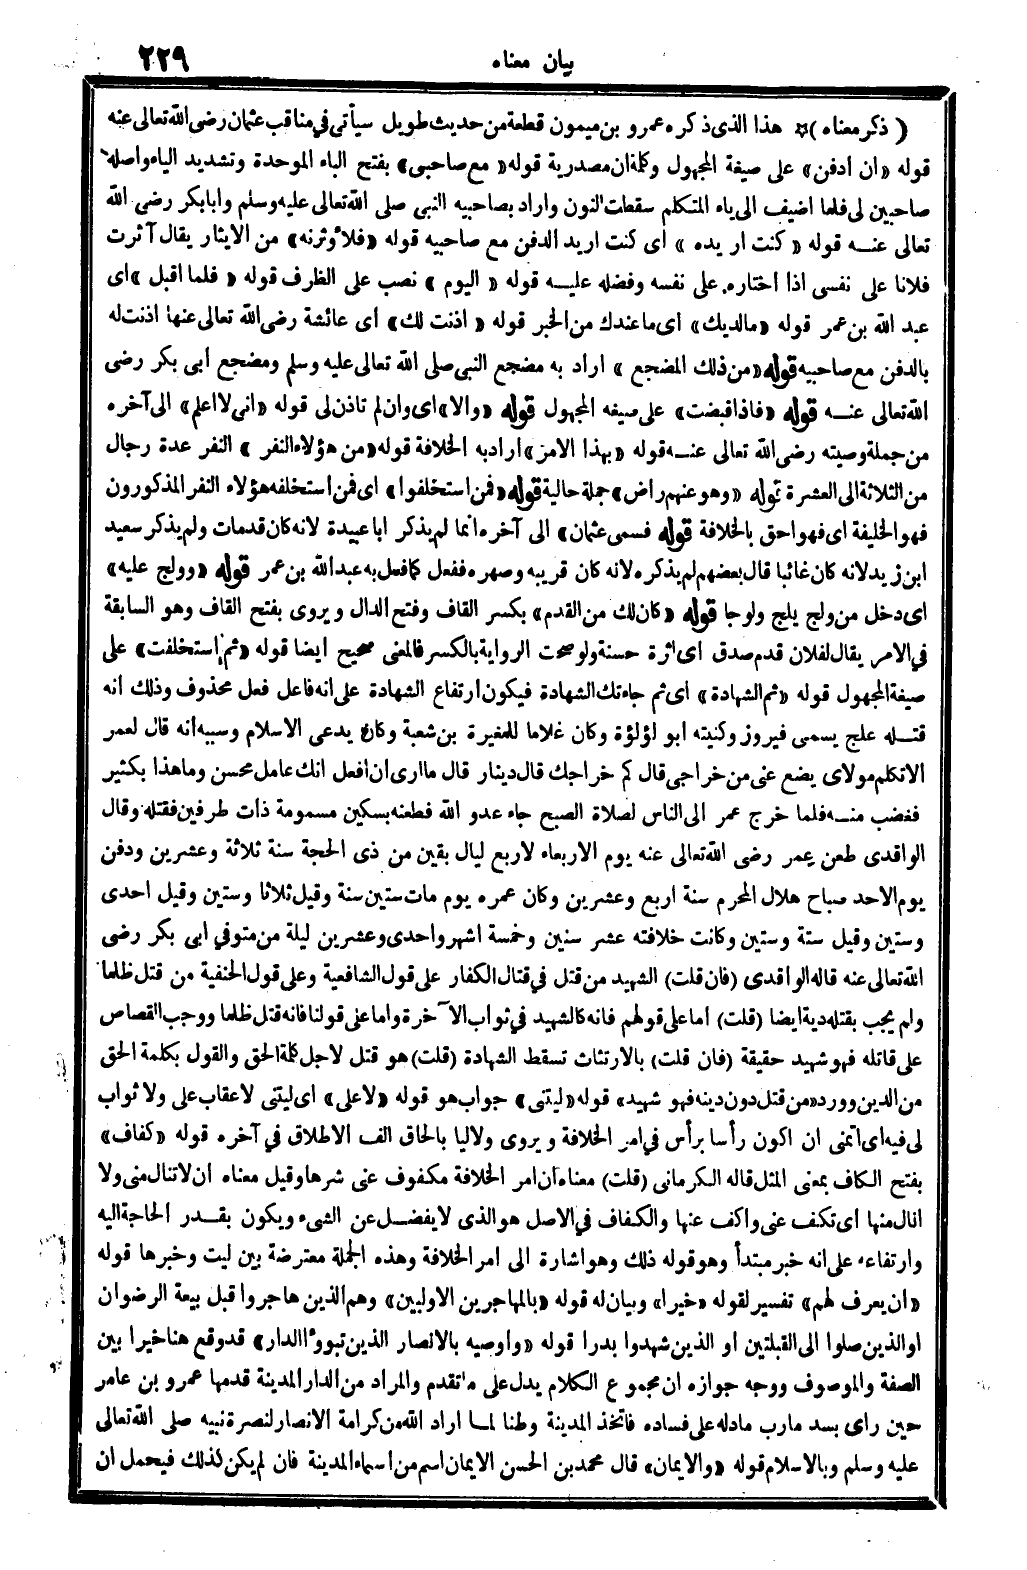 بيان معناه
٢٢٩
( ذكر معناه ) هذا الذى ذكره عمرو بن ميمون قطعة من حديث طويل سيأتى فى مناقب عثمان رضى الله تعالى عنه
قوله «ان ادفن» على صيغة المجهول وكلة ان مصدرية قوله «مع صاحبى» بفتح الباء الموحدة وتشديد الياء واصله
صاحبين لى فلما اضيف الى ياء المتكلم سقطت النون واراد بصاحبيه النبى صلى الله تعالى عليه وسلم وابابكر رضى الله
تعالى عنــه قوله «كنت اريده» اى كنت اريد الدفن مع صاحبيه قوله «فلأوثرنه» من الايثار يقال آثرت
فلانا على نفسى اذا اختاره على نفسه وفضله عليــه قوله «اليوم» نصب على الظرف قوله «فلما اقبل» اى
عبد الله بن عمر قوله «مالديك» اى ما عندك من الخبر قوله «اذنت لك» اى عائشة رضى الله تعالى عنها اذنت له
بالدفن مع صاحبيه قوله «من ذلك المضجع» اراد به مضجع النبى صلى الله تعالى عليه وسلم ومضجع أبى بكر رضى
الله تعالى عنــه قوله «فاذا قبضت» على صيغه المجهول قوله «والا» اى وان لم تاذن لى قوله «انى لا اعلم» الى آخره
من جملة وصيته رضى الله تعالى عنــه قوله «بهذا الامر» اراد به الخلافة قوله «من هؤلاء النفر» النفر عدة رجال
من الثلاثة الى العشرة قوله «وهو عنهم راض» جملة حالية قوله «فمن استخلفوا» اى فمن استخلفه هؤلاء النفر المذكورون
فهو الخليفة اى فهو احق بالخلافة قوله فسمى عثمان» الى آخره انما لم يذكر ابا عبيدة لانه كان قدمات ولم يذكر سعيد
ابن زيد لانه كان غائبا قال بعضهم لم يذكره لانه كان قريبه وصهره ففعل كما فعل به عبد الله بن عمر قوله «وولج عليه»
اى دخل من ولج يلج ولوجا قوله «كان لك من القدم» بكسر القاف وفتح الدال ويروى بفتح القاف وهو السابقة
فى الامر يقال لفلان قدم صدق اى اثرة حسنة ولو صحت الرواية بالكسر فالمعنى صحيح ايضا قوله «ثم استخلفت» على
صيغة المجهول قوله «ثم الشهادة» اى ثم جاءتك الشهادة فيكون ارتفاع الشهادة على انه فاعل فعل محذوف وذلك انه
قتــله علج يسمى فيروز وكنيته ابو لؤلؤة وكان غلاما للمغيرة بن شعبة وكان يدعى الاسلام وسببه انه قال لعمر
الا تكلم مولاى يضع عنى من خراجى قال كم خراجك قال دينار قال ما ارى ان افعل انك عامل محسن وما هذا بكثير
فغضب منــه فلما خرج عمر الى الناس لصلاة الصبح جاء عدو الله فطعنه بسكين مسمومة ذات طرفين فقتله وقال
الواقدى طعن عمر رضى الله تعالى عنه يوم الاربعاء لاربع ليال بقين من ذى الحجة سنة ثلاثة وعشرين ودفن
يوم الاحد صباح هلال المحرم سنة اربع وعشرين وكان عمره يوم مات ستين سنة وقيل ثلاثا وستين وقيل احدى
وستين وقيل ستة وستين وكانت خلافته عشر سنين وخمسة اشهر واحدى وعشرين ليلة من متوفى ابى بكر رضى
الله تعالى عنه قاله الواقدى (فان قلت) الشهيد من قتل فى قتال الكفار على قول الشافعية وعلى قول الحنفية من قتل ظلما
ولم يجب بقتله دية ايضا (قلت) اما على قولهم فانه كالشهيد فى ثواب الآخرة واما على قولنا فانه قتل ظلما ووجب القصاص
على قاتله فهو شهيد حقيقة (فان قلت) بالارتثاث تسقط الشهادة (قلت) هو قتل لاجل كلة الحق والقول بكلمة الحق
من الدين وورد «من قتل دون دينه فهو شهيد» قوله «ليتى» جواب هو قوله «لا على» اى ليتى لا عقاب على ولا ثواب
لى فيه اى اتمنى ان اكون رأسا برأس فى امر الخلافة ويروى ولا ليا بالحاق الف الاطلاق فى آخره قوله «كفاف»
بفتح الكاف بمعنى المثل قاله الكرمانى (قلت) معناه ان امر الخلافة مكفوف عنى شرها وقيل معناه ان لا تنال منى ولا
انال منها اى تكف عنى واكف عنها والكفاف فى الاصل هو الذى لا يفضــل عن الشىء ويكون بقــدر الحاجة اليه
وارتفاعه على انه خبر مبتدأ وهو قوله ذلك وهو اشارة الى امر الخلافة وهذه الجملة معترضة بين ليت وخبرها قوله
«ان يعرف لهم» تفسير لقوله «خيرا» وبيان له قوله «بالمهاجرين الاوليين» وهم الذين هاجروا قبل بيعة الرضوان
او الذين صلوا الى القبلتين او الذين شهدوا بدرا قوله «واوصيه بالانصار الذين تبوؤا الدار» قدوقع هنا خيرا بين
الصفة والموصوف ووجه جوازه ان مجموع الكلام يدل على ما تقدم والمراد من الدار المدينة قدمها عمرو بن عامر
حين راى بسد مارب ما دله على فساده فاتخذ المدينة وطنا لمــا اراد الله من كرامة الانصار لنصرة نبيه صلى الله تعالى
عليه وسلم وبالاسلام قوله «والايمان» قال محمد بن الحسن الايمان اسم من اسماء المدينة فان لم يكن كذلك فيحمل ان